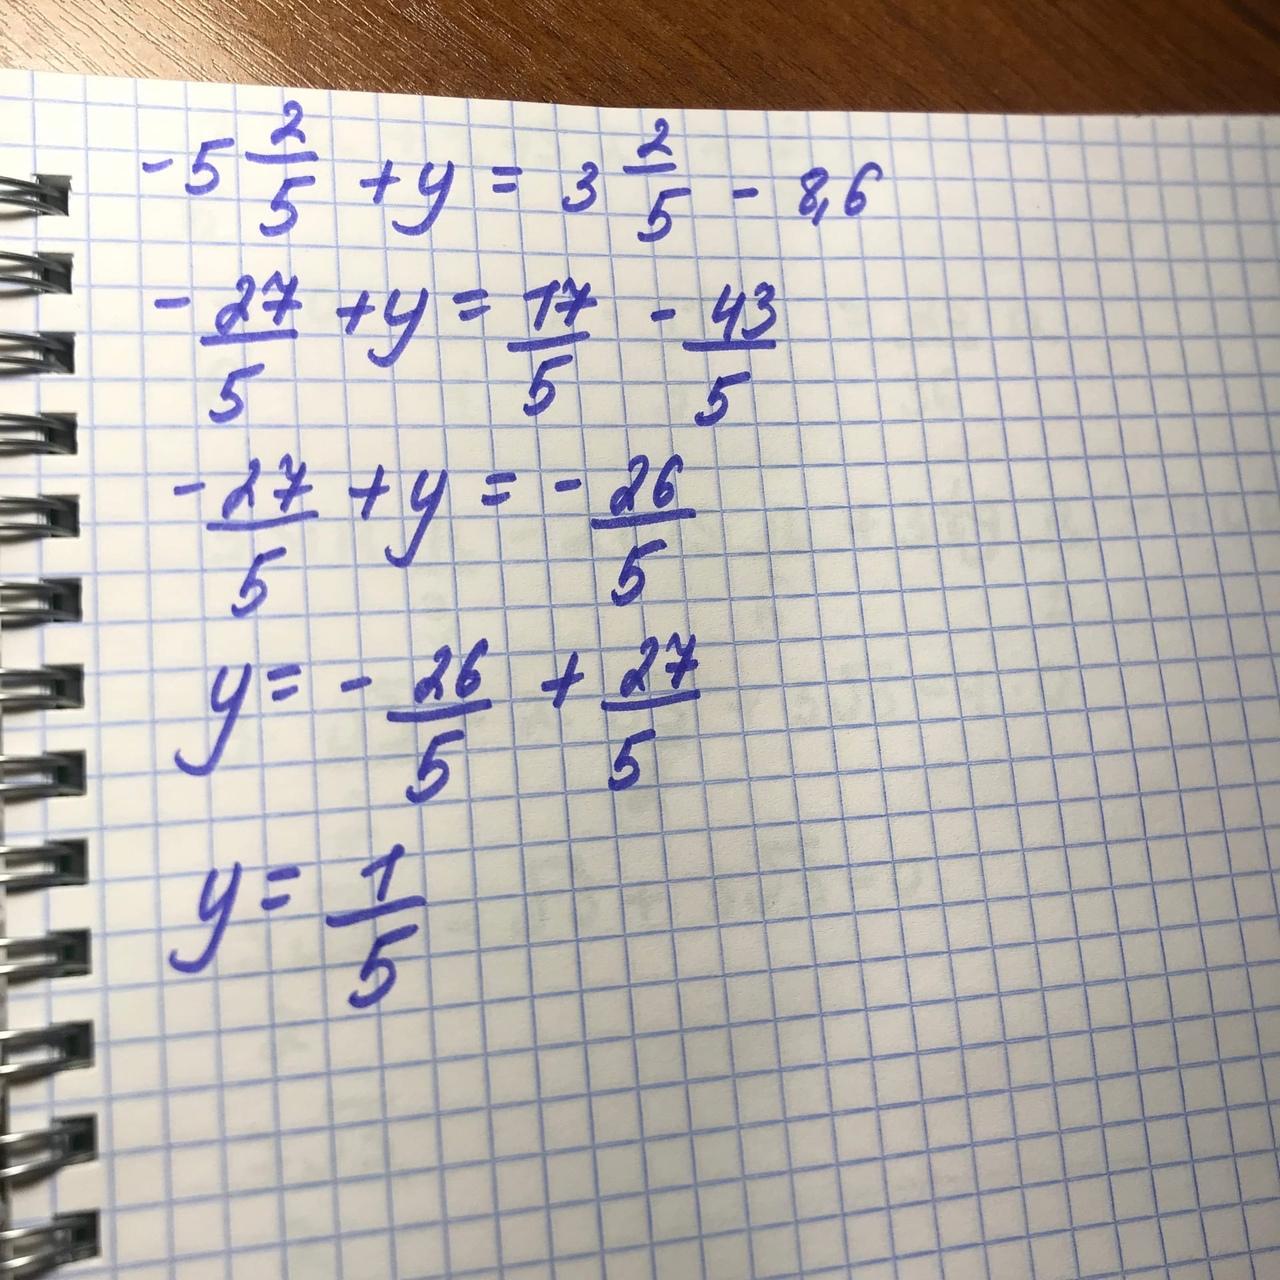 -5 2/5 + y = 3 2/5 - 8,6
- 27/5 + y = 17/5 - 43/5
- 27/5 + y = - 26/5
y = - 26/5 + 27/5
y = 1/5